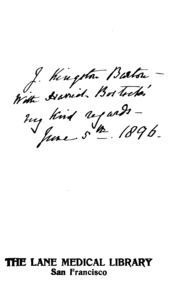 J. Kingston Barton –
With David Bostock's
very kind regards –
June 5th. 1896.
THE LANE MEDICAL LIBRARY
San Francisco